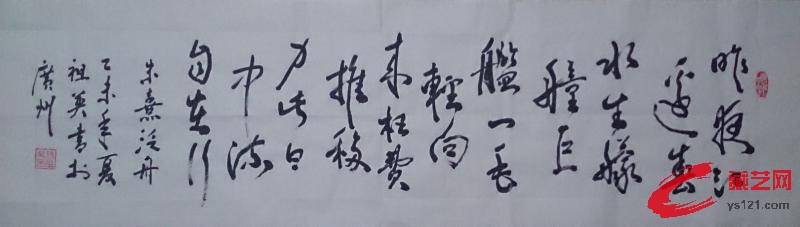 昨夜江
邊春
水生艨
艟巨
艦一毛
輕向
来枉費
推移
力此日
中流
自在行
朱熹泛舟
乙未年夏
祖英書於
廣州
艺网
ys121.com